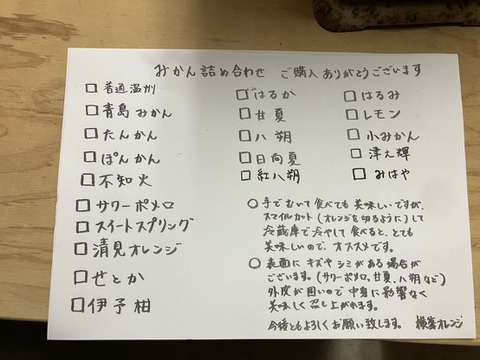 みかん詰め合わせ ご購入ありがとうございます
□ 普通温州
□ 青島みかん
□ たんかん
□ ぽんかん
□ 不知火
□ サワーポメロ
□ スイートスプリング
□ 清見オレンジ
□ せとか
□ 伊予柑
□ はるか
□ 甘夏
□ 八朔
□ 日向夏
□ 紅八朔
□ はるみ
□ レモン
□ 小みかん
□ 津之輝
□ みはや
○ 手でむいて食べても美味しいですが、
スマイルカット(オレンジを切るように)して
冷蔵庫で冷やして食べると、とても
美味しいので、オススメです。
○ 表面にキズやシミがある場合が
ございます。(サワーポメロ、甘夏、八朔など)
外皮が固いので中身に影響なく
美味しく召し上がれます。
今後ともよろしくお願い致します。 横峯オレンジ